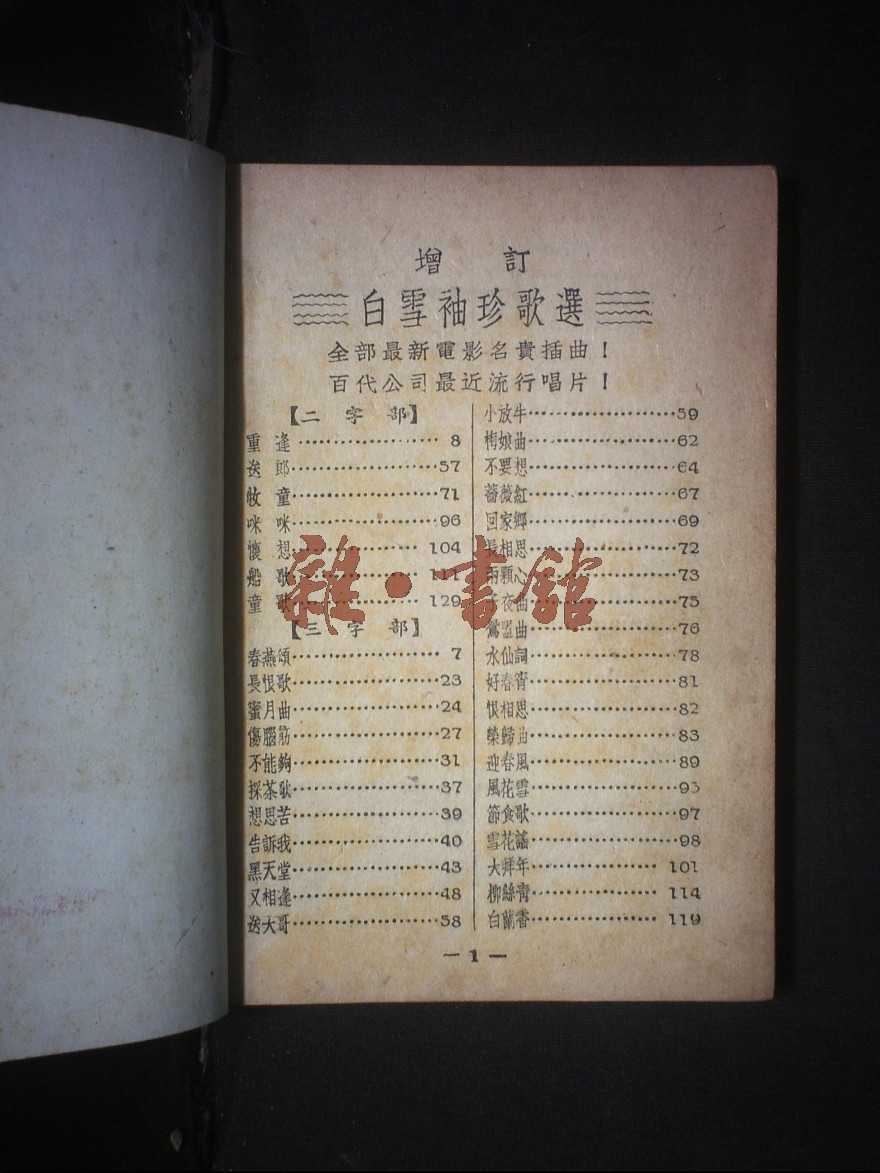 增 訂
白雪袖珍歌選
全部最新電影名貴插曲！
百代公司最近流行唱片！
【二 字 部】
重 逢 8
送 郎 57
牧 童 71
咪 咪 96
懷 想 104
船 歌 111
童 歌 129
【三 字 部】
春燕頌 7
長恨歌 23
蜜月曲 24
傷腦筋 27
不能夠 31
採茶歌 37
想思苦 39
告訴我 40
黑天堂 43
又相逢 48
送大哥 58
小放牛 59
梅娘曲 62
不要想 64
薔薇紅 67
回家鄉 69
長相思 72
兩顆心 73
子夜曲 75
鴛盟曲 76
水仙詞 78
好春宵 81
恨相思 82
榮歸曲 83
迎春風 89
風花雪 93
節食歌 97
雪花謠 98
大拜年 101
柳絲青 114
白蘭香 119
— 1 —
雜·書館